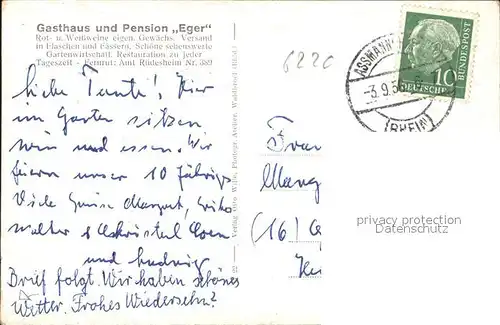 Gasthaus und Pension „Eger"
Rot- u. Weißweine eigen. Gewächs. Versand
in Flaschen und Fässern. Schöne sehenswerte
Gartenwirtschaft. Restauration zu jeder
Tageszeit - Fernruf: Amt Rüdesheim Nr.
6220
ASSMANN
-3.9.5
(RHEIN)
10
DEUTSCHE
BUNDESPOST
Liebe Tante! Hier
im Garten sitzen
wir und essen. Wir
feiern unser 10 jährigs
Viele Grüsse Margret,
Walter
und Ludwig
Brief folgt. Wir haben schönes
Wetter. Frohes Wiedersehn?
Frau
(16)
privacy protection
Datenschutz